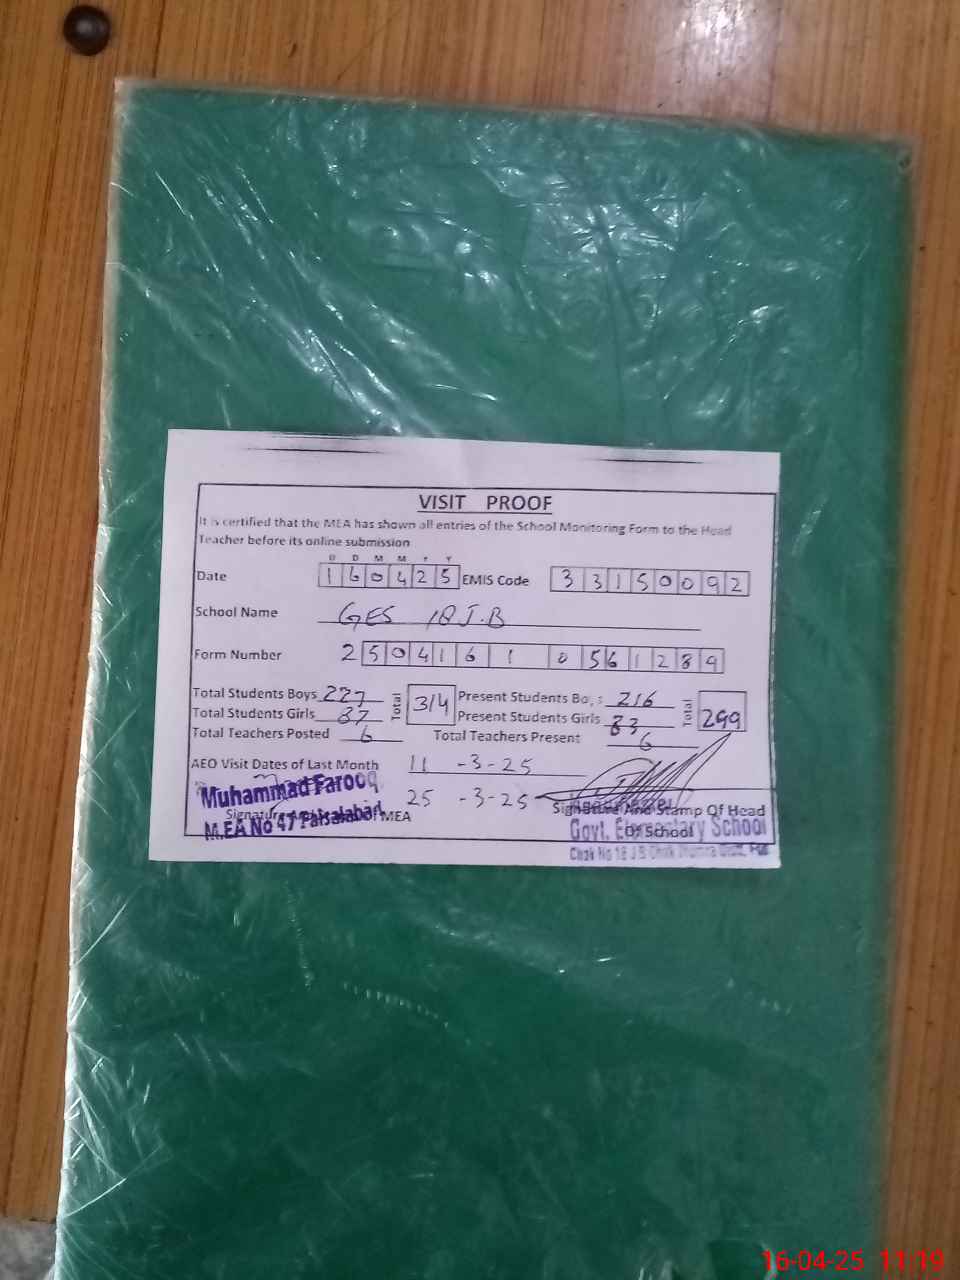 VISIT PROOF
It is certified that the MEA has shown all entries of the School Monitoring Form to the Head
Teacher before its online submission
D D M M Y Y
Date 160425 EMIS Code 33150092
School Name GES 18 J.B
Form Number 2504161 1 0561289
Total Students Boys 227 Total 314 Present Students Boys 216 Total 299
Total Students Girls 87 Present Students Girls 83
Total Teachers Posted 6 Total Teachers Present 6
AEO Visit Dates of Last Month 11 -3-25
25 -3-25
Muhammad Farooq
M.EA No 47 Faisalabad
Signature MEA
Signature And Stamp Of Head
Of School
Headmaster
Govt. Elementary School
Chak No 18 J B
16-04-25 11:19